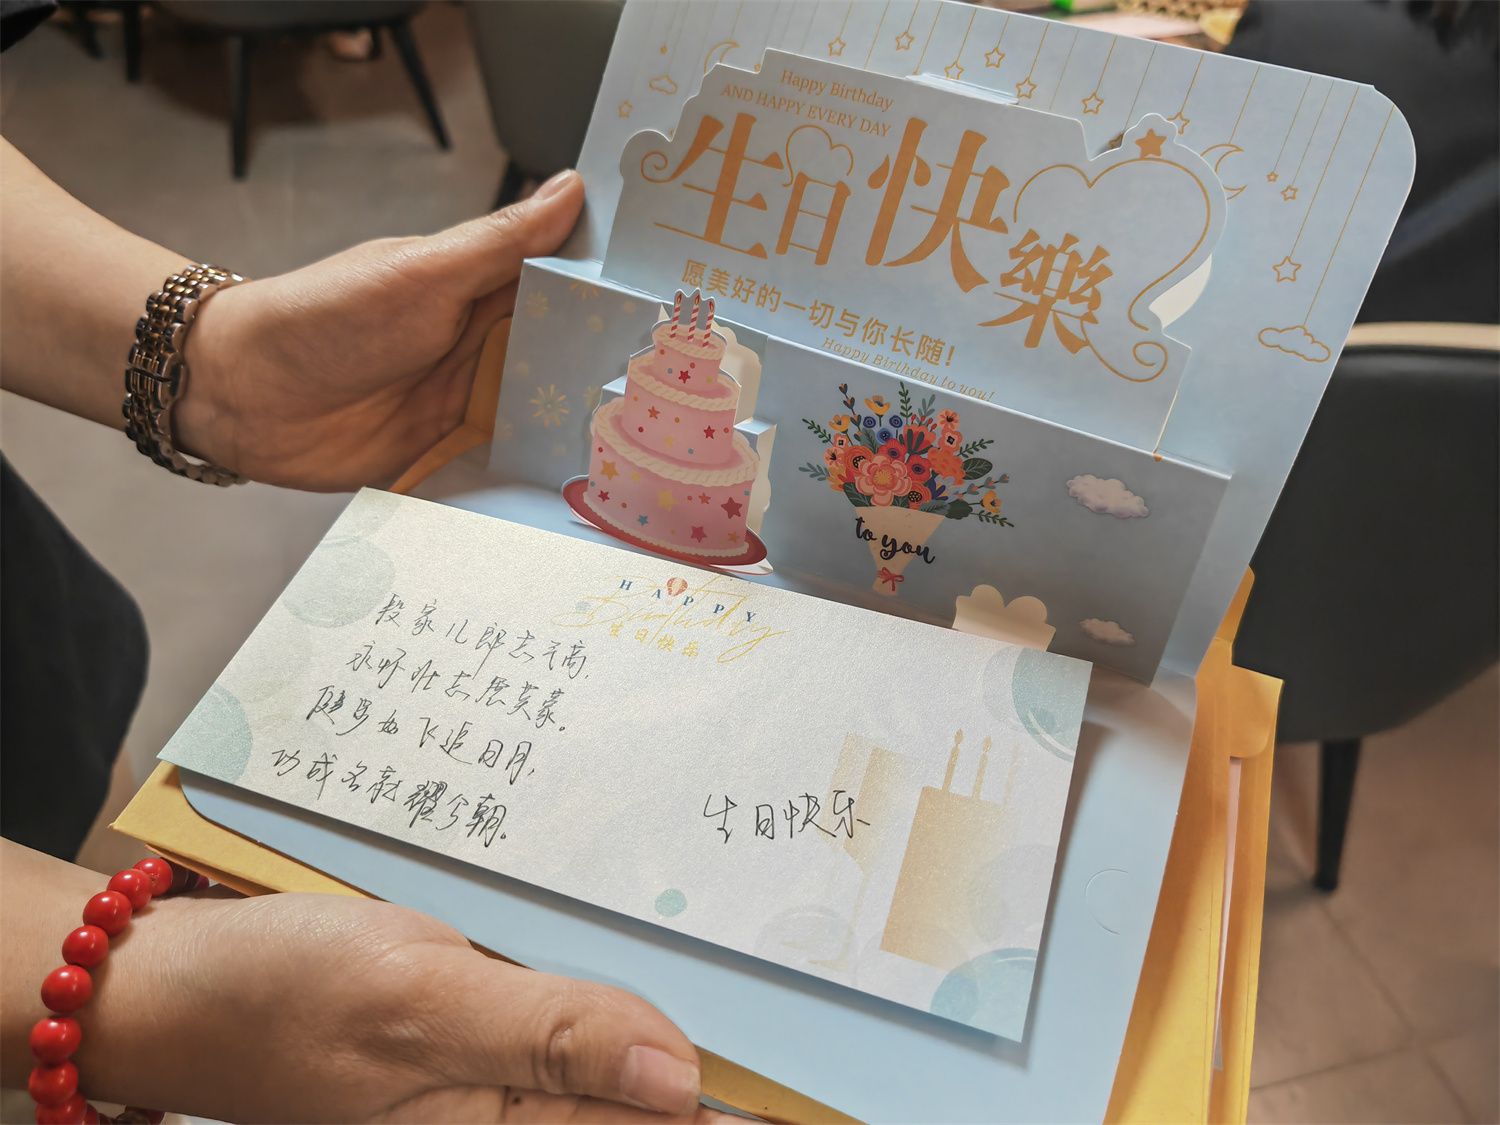 Happy Birthday
AND HAPPY EVERY DAY
生日快樂
愿美好的一切与你长随!
Happy Birthday to you!
to you
HAPPY
Birthday
生日快乐
段家儿郎志气高,
永怀壮志展英豪。
健步如飞追日月,
功成名就耀今朝。
生日快乐